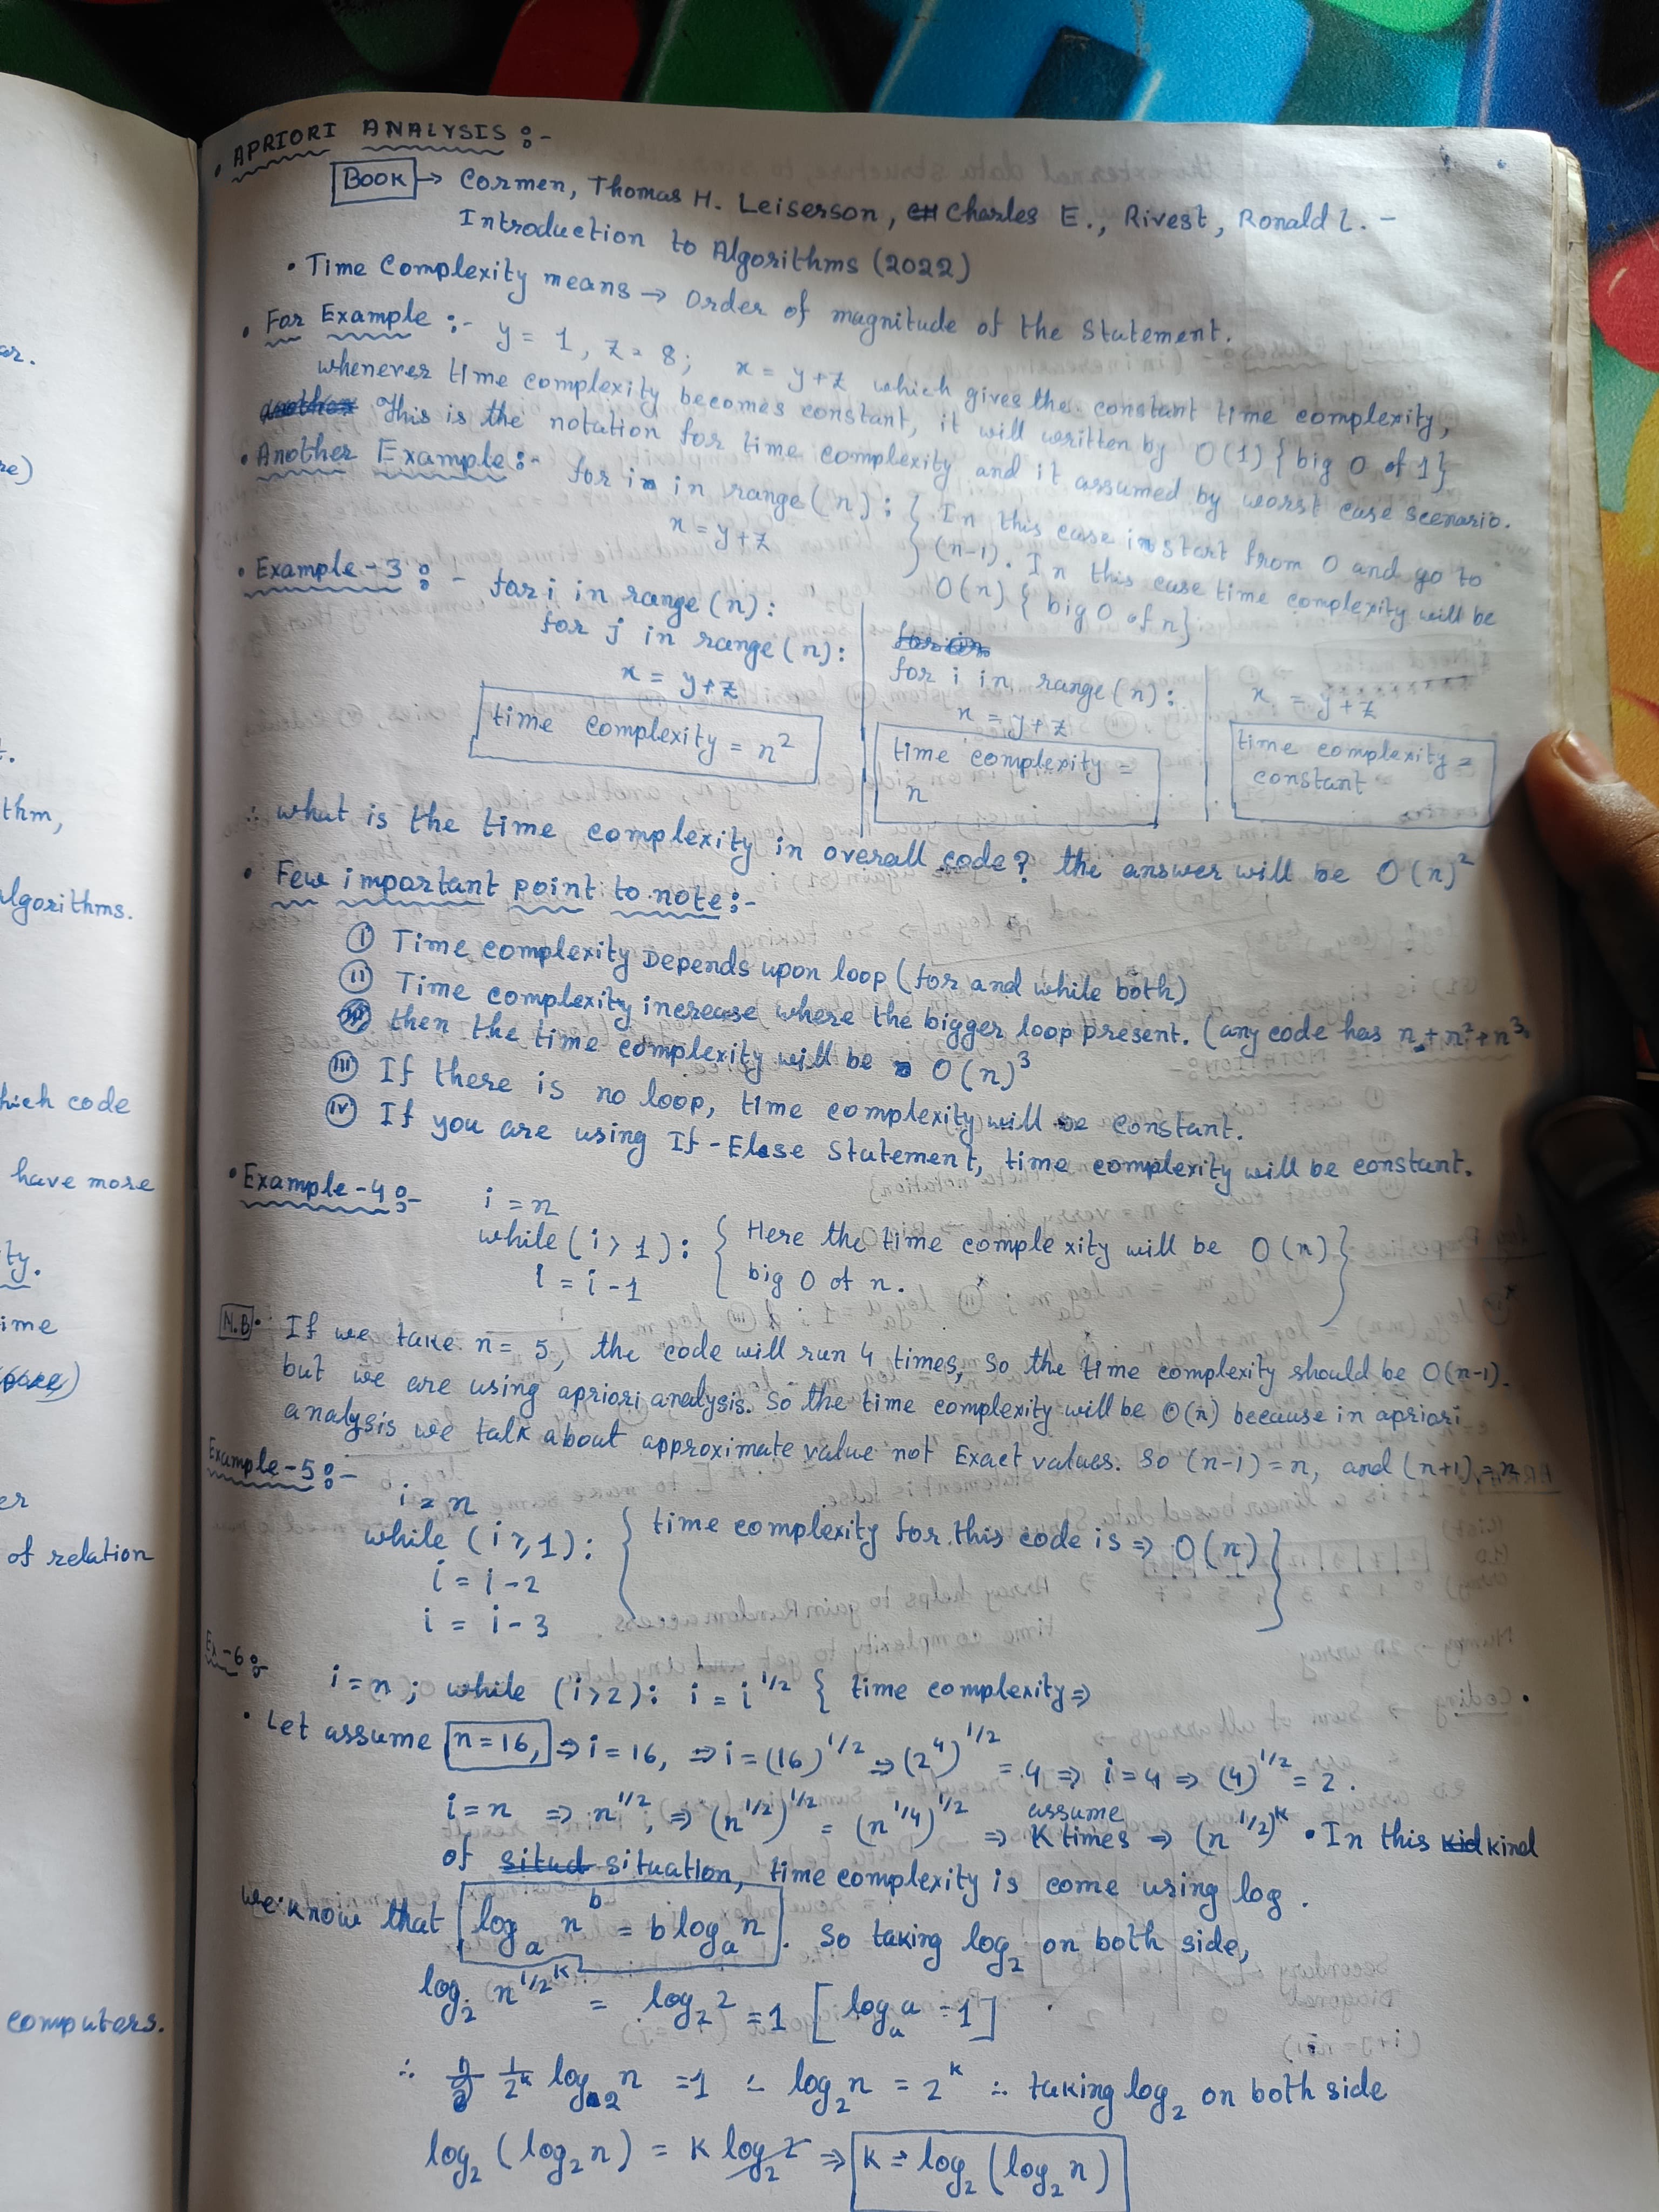 • APRIORI ANALYSIS :-
BOOK → Cormen, Thomas H. Leiserson, Charles E., Rivest, Ronald L. -
Introduction to Algorithms (2022)
• Time Complexity means → Order of magnitude of the Statement.
• For Example :- y = 1, z = 8; x = y+z which gives the constant time complexity,
whenever time complexity becomes constant, it will written by O(1) {big O of 1}
This is the notation for time complexity and it assumed by worst case scenario.
• Another Example :- for i in range(n): { In this case i start from 0 and go to
x = y+z } (n-1). In this case time complexity will be
O(n) {big O of n}
• Example-3 :- for i in range(n):
for j in range(n):
x = y+z
time complexity = n²
for i in range(n):
x = y+z
time complexity =
n
x = y+z
time complexity =
constant
∴ what is the time complexity in overall code? the answer will be O(n)²
• Few important point to note :-
(i) Time complexity Depends upon loop (for and while both)
(ii) Time complexity increase where the bigger loop present. (any code has n + n² + n³.
then the time complexity will be O(n)³
(iii) If there is no loop, time complexity will be constant.
(iv) If you are using If-Else Statement, time complexity will be constant.
• Example-4 :- i = n
while (i > 1): { Here the time complexity will be O(n) }
i = i-1 big O of n.
N.B • If we take n = 5, the code will run 4 times, so the time complexity should be O(n-1).
but we are using apriori analysis. So the time complexity will be O(n) because in apriori
analysis we talk about approximate value not Exact values. So (n-1) = n, and (n+1) = n
Example-5 :-
i = n
while (i ≥ 1): { time complexity for this code is ⇒ O(n) }
i = i-2
i = i-3
Ex-6 :-
i = n ; while (i > 2): i = i^1/2 { time complexity ⇒
• Let assume n = 16, ⇒ i = 16, ⇒ i = (16)^1/2 ⇒ (2^4)^1/2 = 4 ⇒ i = 4 ⇒ (4)^1/2 = 2.
i = n ⇒ n^1/2, ⇒ (n^1/2)^1/2 = (n^1/4)^1/2 ⇒ assume K times ⇒ (n^1/2)^k • In this kind
of situation, time complexity is come using log.
we know that log_a n^b = b log_a n. So taking log_2 on both side,
log_2 n^1/2^k = log_2 2 = 1 [log_a a = 1]
∴ 1/2^k log_2 n = 1 ∴ log_2 n = 2^k ∴ taking log_2 on both side
log_2 (log_2 n) = K log_2 2 ⇒ K = log_2 (log_2 n)
ar.
re)
t.
thm,
algorithms.
hich code
have more
ty.
ime
er
of relation
computers.